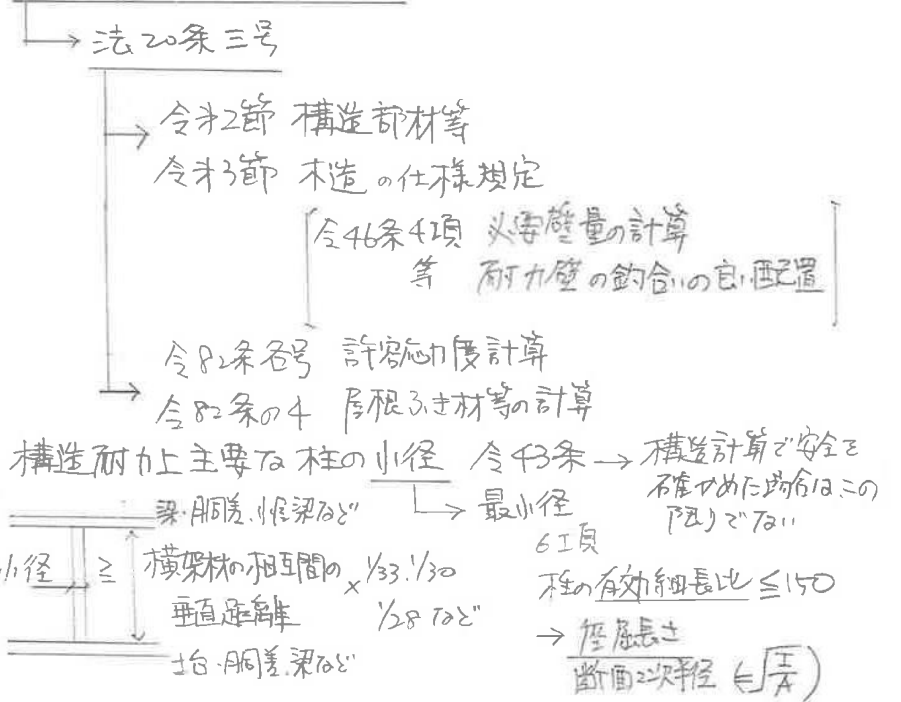 法20条三号
令第2節 構造部材等
令第3節 木造の仕様規定
令46条4項 必要壁量の計算
等 耐力壁の釣合いの良い配置
令82条各号 許容応力度計算
令82条の4 屋根ふき材等の計算
構造耐力上主要な柱の小径 令43条→構造計算で安全を
確かめた場合はこの
限りでない
最小径
梁・胴差、小屋梁など
6項
小径 ≧ 横架材の相互間の × 1/33、1/30
垂直距離 1/28 など
柱の有効細長比≦150
土台・胴差、梁など
→ 座屈長さ
断面2次半径 (=√I/A)